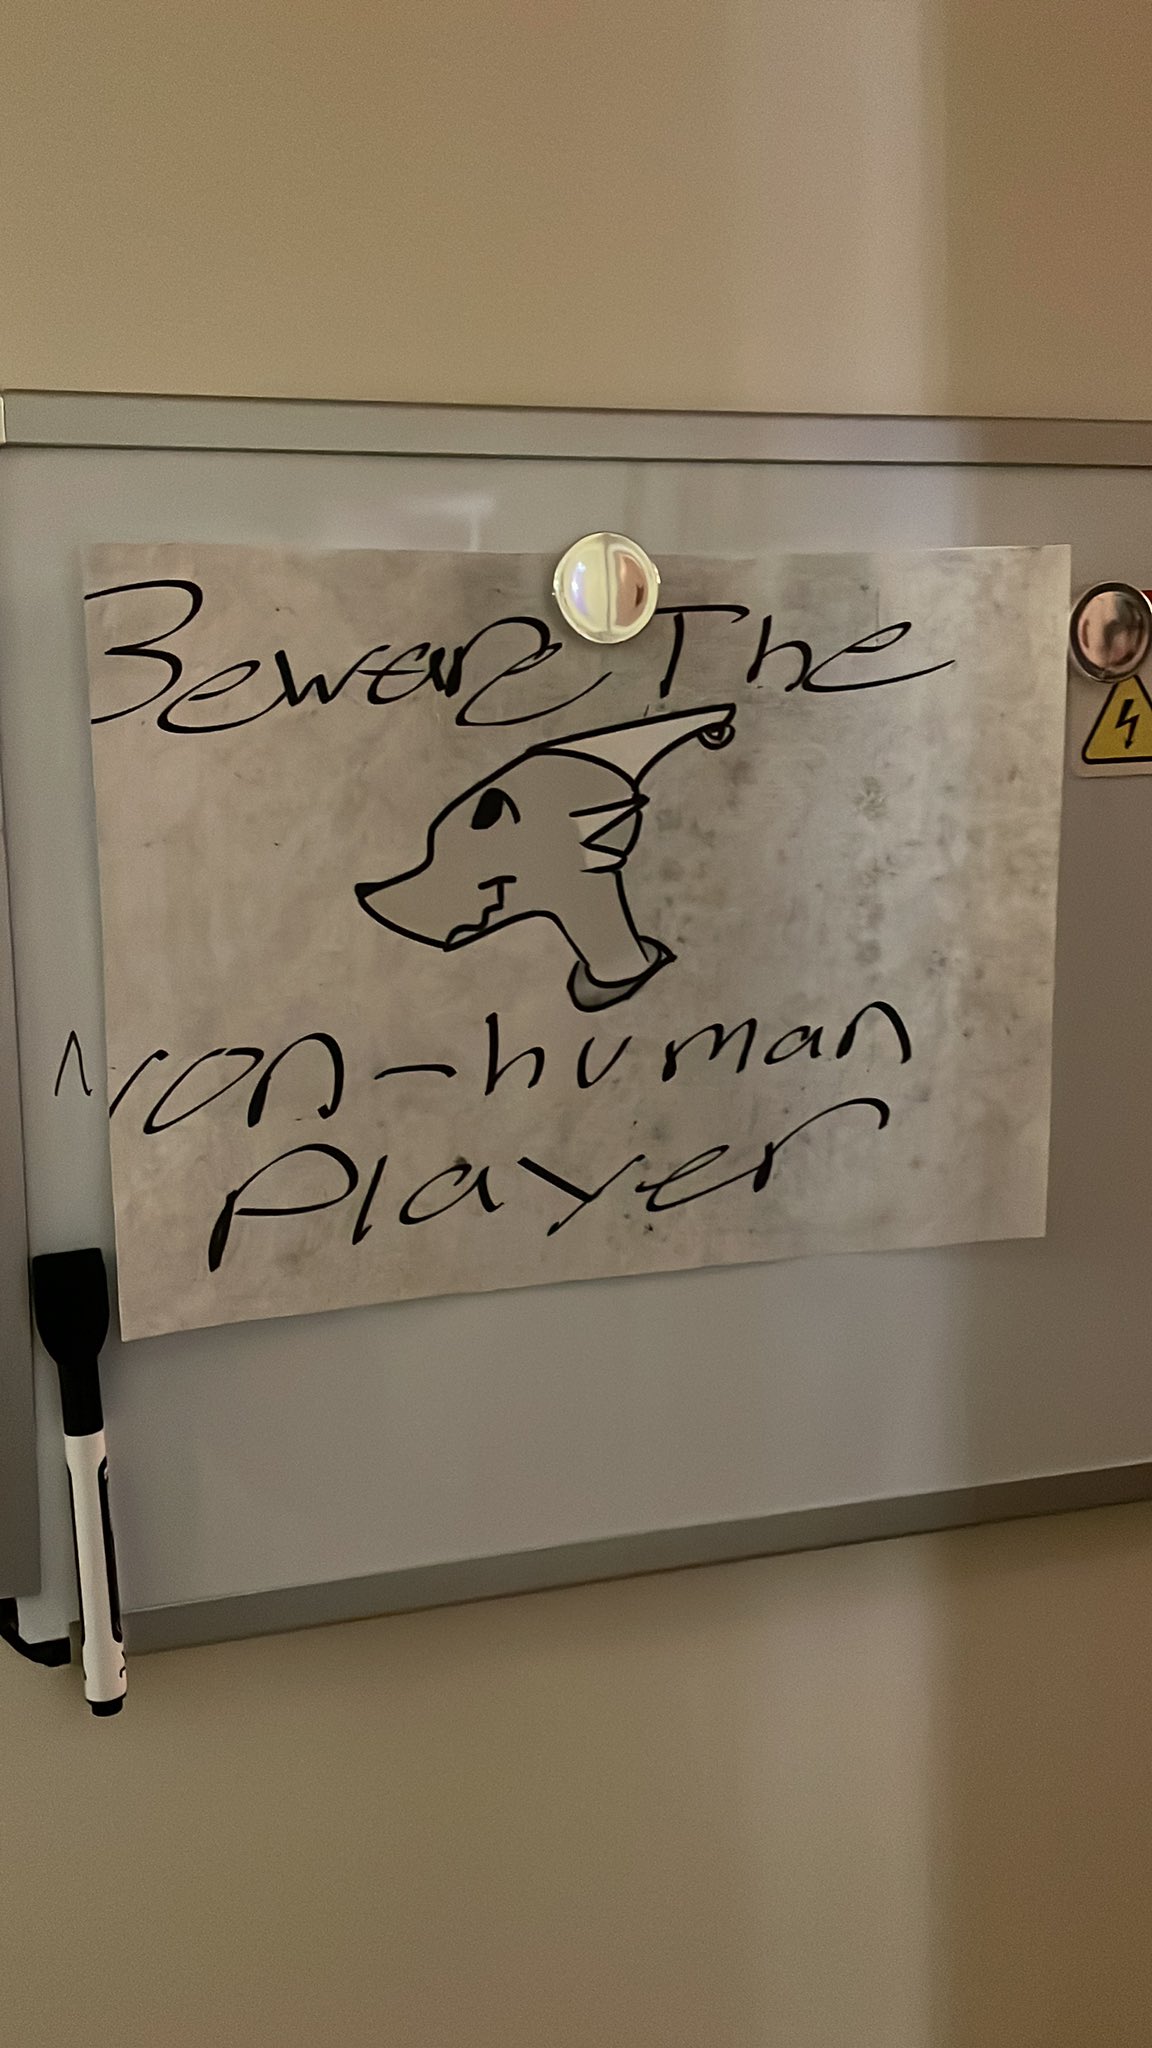 Beware The
Non-human
Player